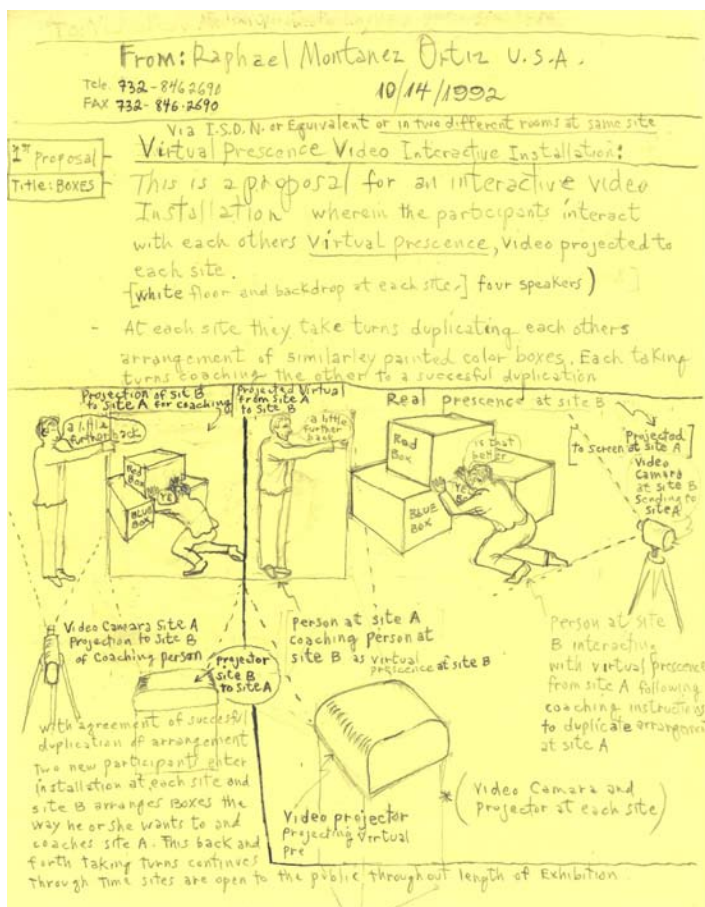 From: Raphael Montanez Ortiz U.S.A.
Tele. 732-846 2690
FAX 732-846-2690
10/14/1992
Via I.S.D.N. or Equivalent or in two different rooms at same site
1st Proposal -
Title: BOXES
Virtual Prescence Video Interactive Installation:
This is a proposal for an interactive video
Installation wherein the participants interact
with each others Virtual prescence, video projected to
each site.
[white floor and backdrop at each site.] four speakers)
- At each site they take turns duplicating each others
arrangement of similarley painted color boxes. Each taking
turns coaching the other to a succesful duplication
Projection of sit B
to Site A for coaching
a little
further back
Red
Box
BLUE
BOX
YE
Projected Virtual
from Site A
to Site B
a little
further
back
Real prescence at site B
Red
Box
BLUE
BOX
is that
better
Projected
[to screen at site A]
Video
Camara
at site B
Sending to
site A
Video Camara Site A
Projection to Site B
of Coaching person
projector
site B
to Site A
person at site A
coaching Person at
site B as virtual
prescence at site B
Person at site
B interacting
with virtual prescence
from site A following
coaching instructions
to duplicate arrangement
at site A
with agreement of succesful
duplication of arrangement
Two new participants enter
installation at each site and
site B arranges Boxes the
way he or she wants to and
coaches site A. This back and
forth taking turns continues
Through Time sites are open to the public throughout length of Exhibition.
Video projector
projecting virtual
pre
* (Video Camara and
Projector at each site)